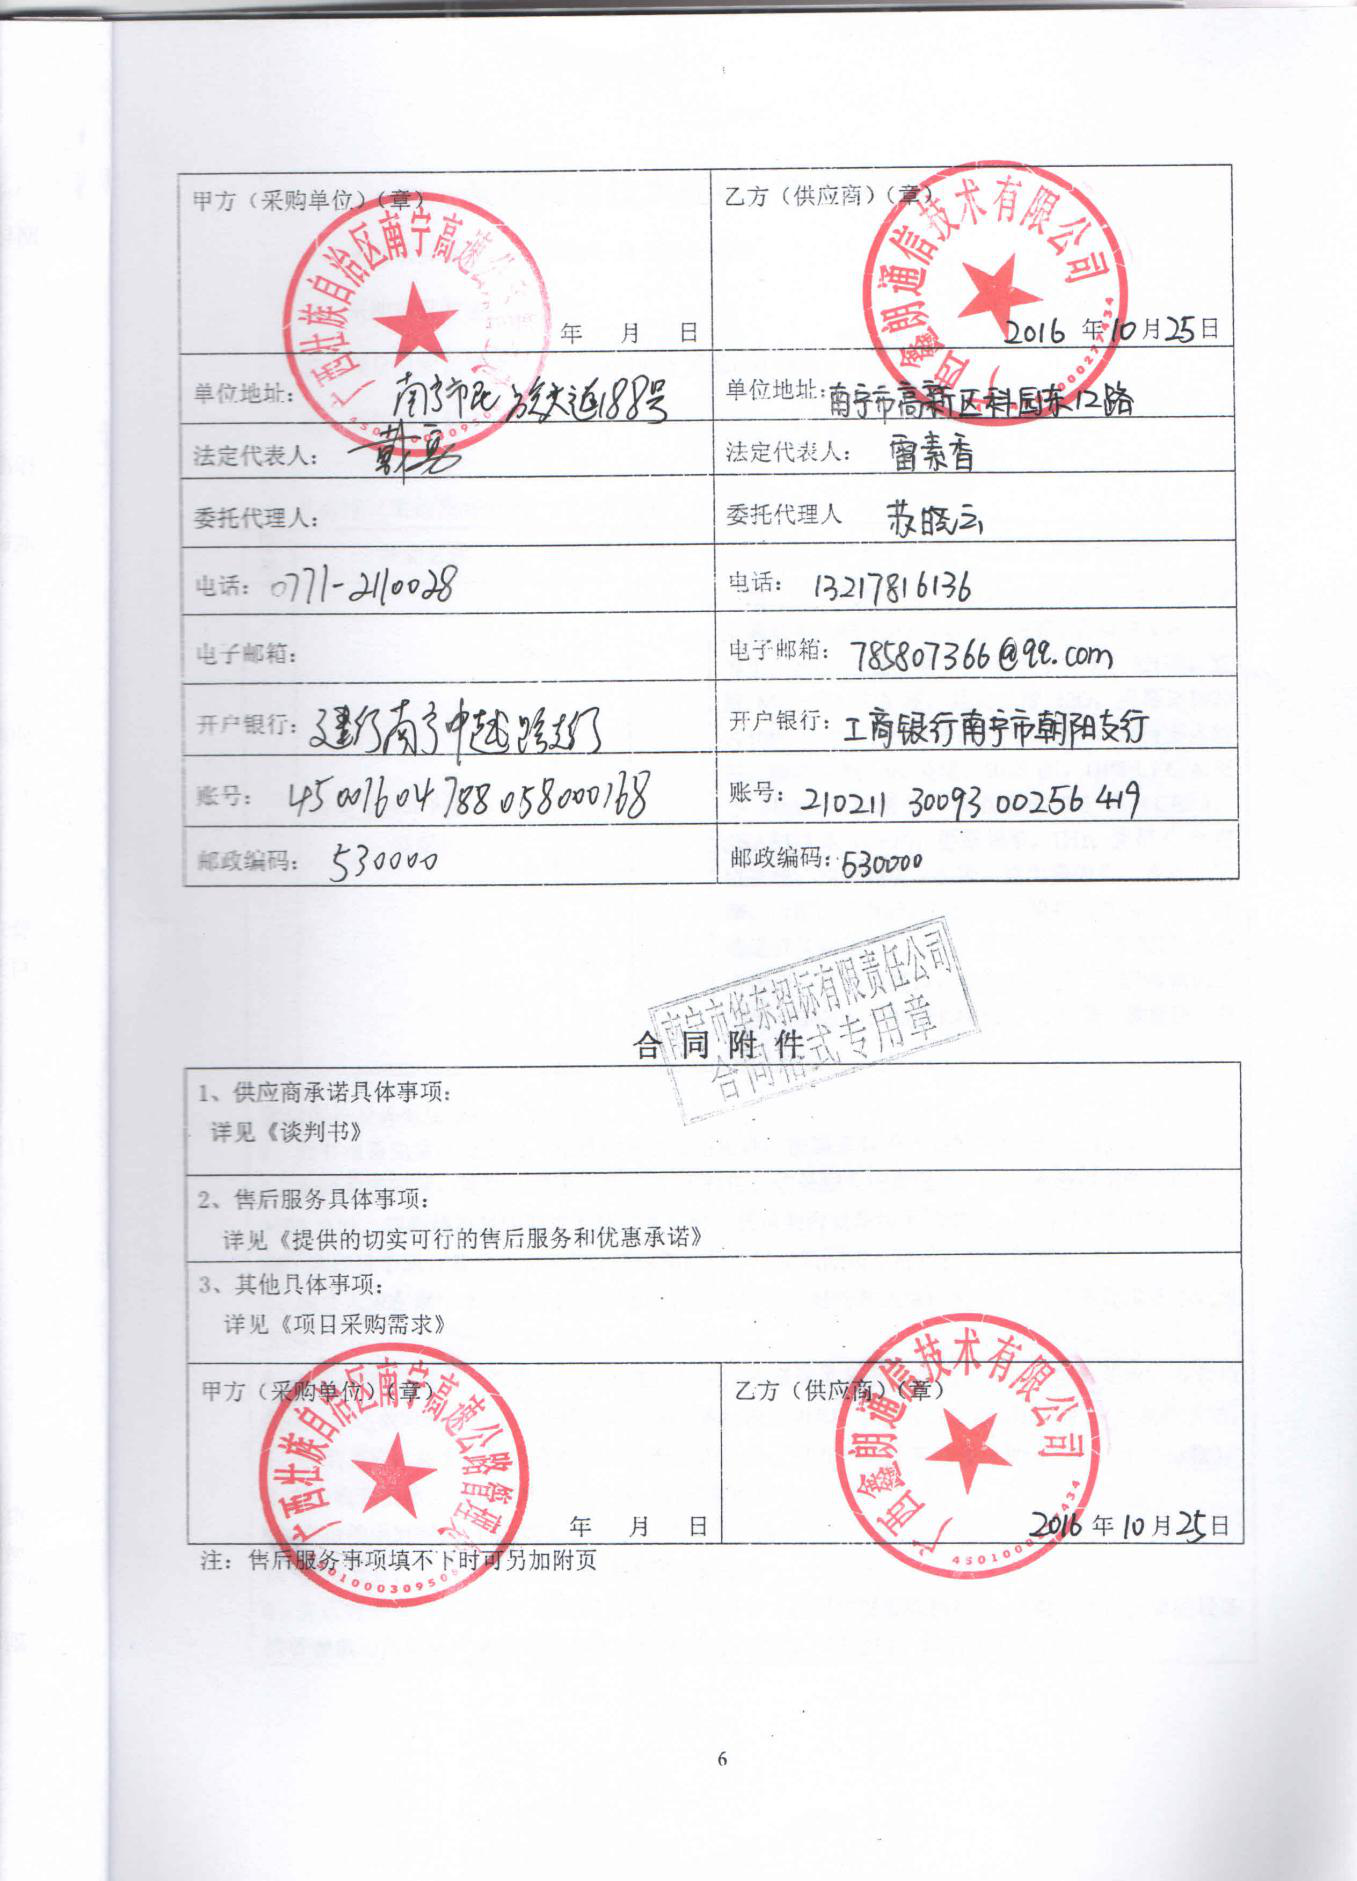 甲方（采购单位）（章）
广西壮族自治区南宁高速公
年 月 日
乙方（供应商）（章）
广西鑫朗通信技术有限公司
2016 年 10 月 25 日
单位地址： 南宁市民族大道188号
单位地址：南宁市高新区科园东12路
法定代表人： 戴亮
法定代表人： 雷素香
委托代理人：
委托代理人 苏晓云
电话：0771-2110028
电话： 13217816136
电子邮箱：
电子邮箱： 785807366@qq.com
开户银行：建行南宁中越路支行
开户银行：工商银行南宁市朝阳支行
账号： 45001604788058000168
账号：210211 30093 00256 419
邮政编码： 530000
邮政编码：530000
南宁市华东招标有限责任公司
合同格式专用章
合 同 附 件
1、供应商承诺具体事项：
详见《谈判书》
2、售后服务具体事项：
详见《提供的切实可行的售后服务和优惠承诺》
3、其他具体事项：
详见《项目采购需求》
甲方（采购单位）（章）
广西壮族自治区南宁高速公路管理
年 月 日
乙方（供应商）（章）
广西鑫朗通信技术有限公司
2016 年 10 月 25 日
注：售后服务事项填不下时可另加附页
6